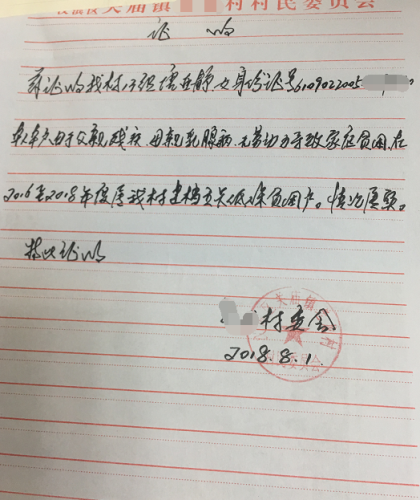 关庙镇 村村民委员会
证明
兹证明我村 组 女身份证号6109022005
，由于父亲残疾，母亲乳腺病，无劳动力导致家庭贫困，在
2016至2018年度属我村建档立卡低保贫困户。情况属实。
特此证明
村委会
2018.8.1